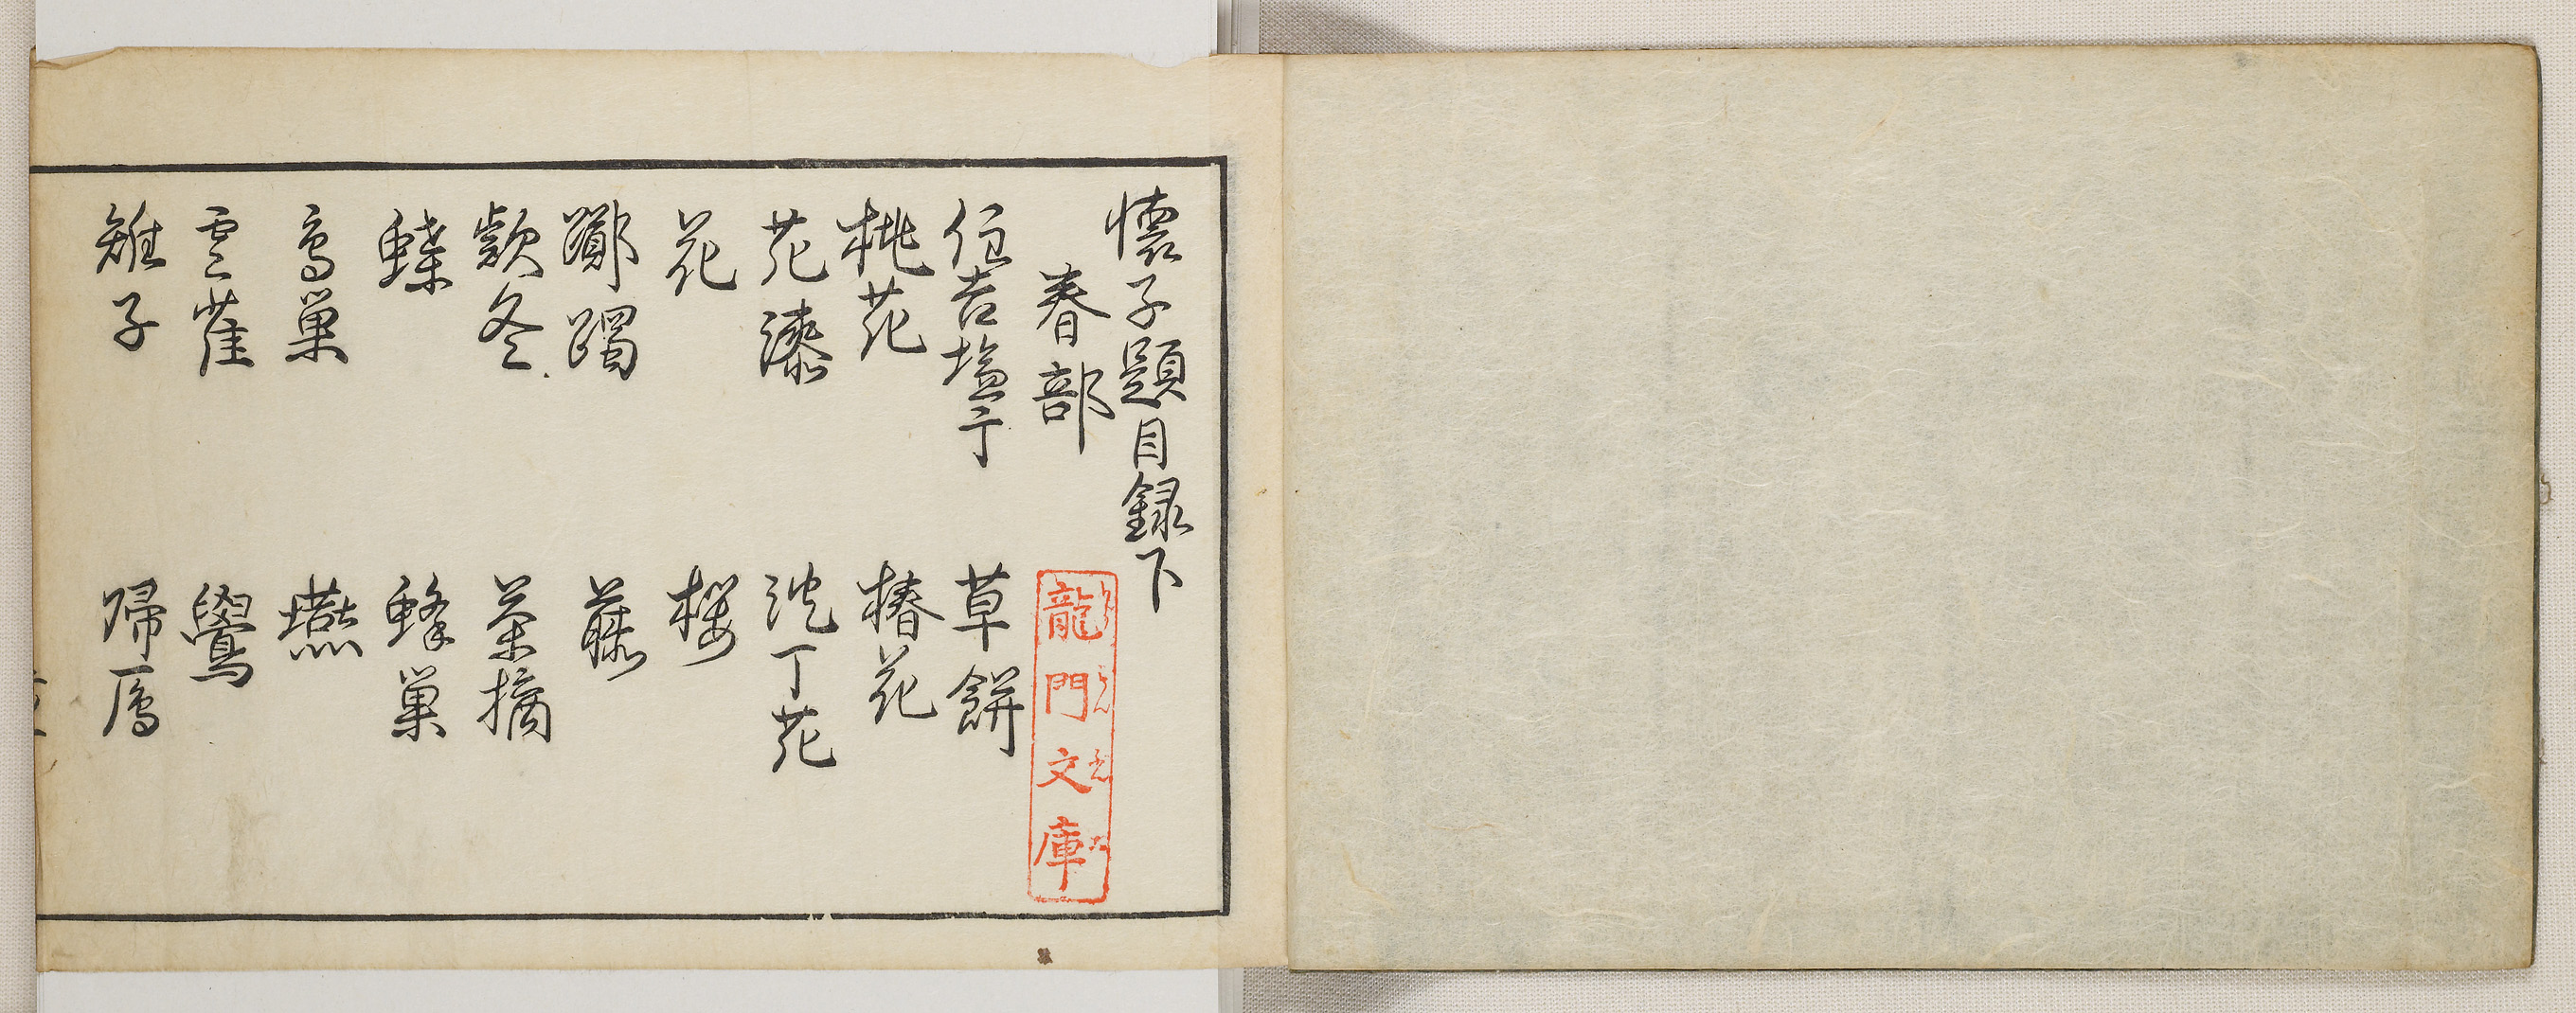 懐子題目録下
春部
住吉塩干
草餅
桃花
椿花
花漆
沈丁花
花
桜
躑躅
藤
款冬
茶摘
蝶
蜂巣
鳥巣
燕
雲雀
鶯
雉子
帰鴈
龍門文庫